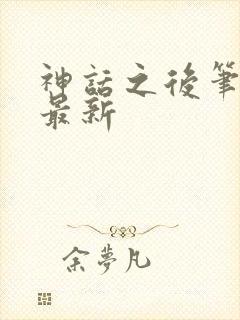 神話之後筆
最新
余夢凡